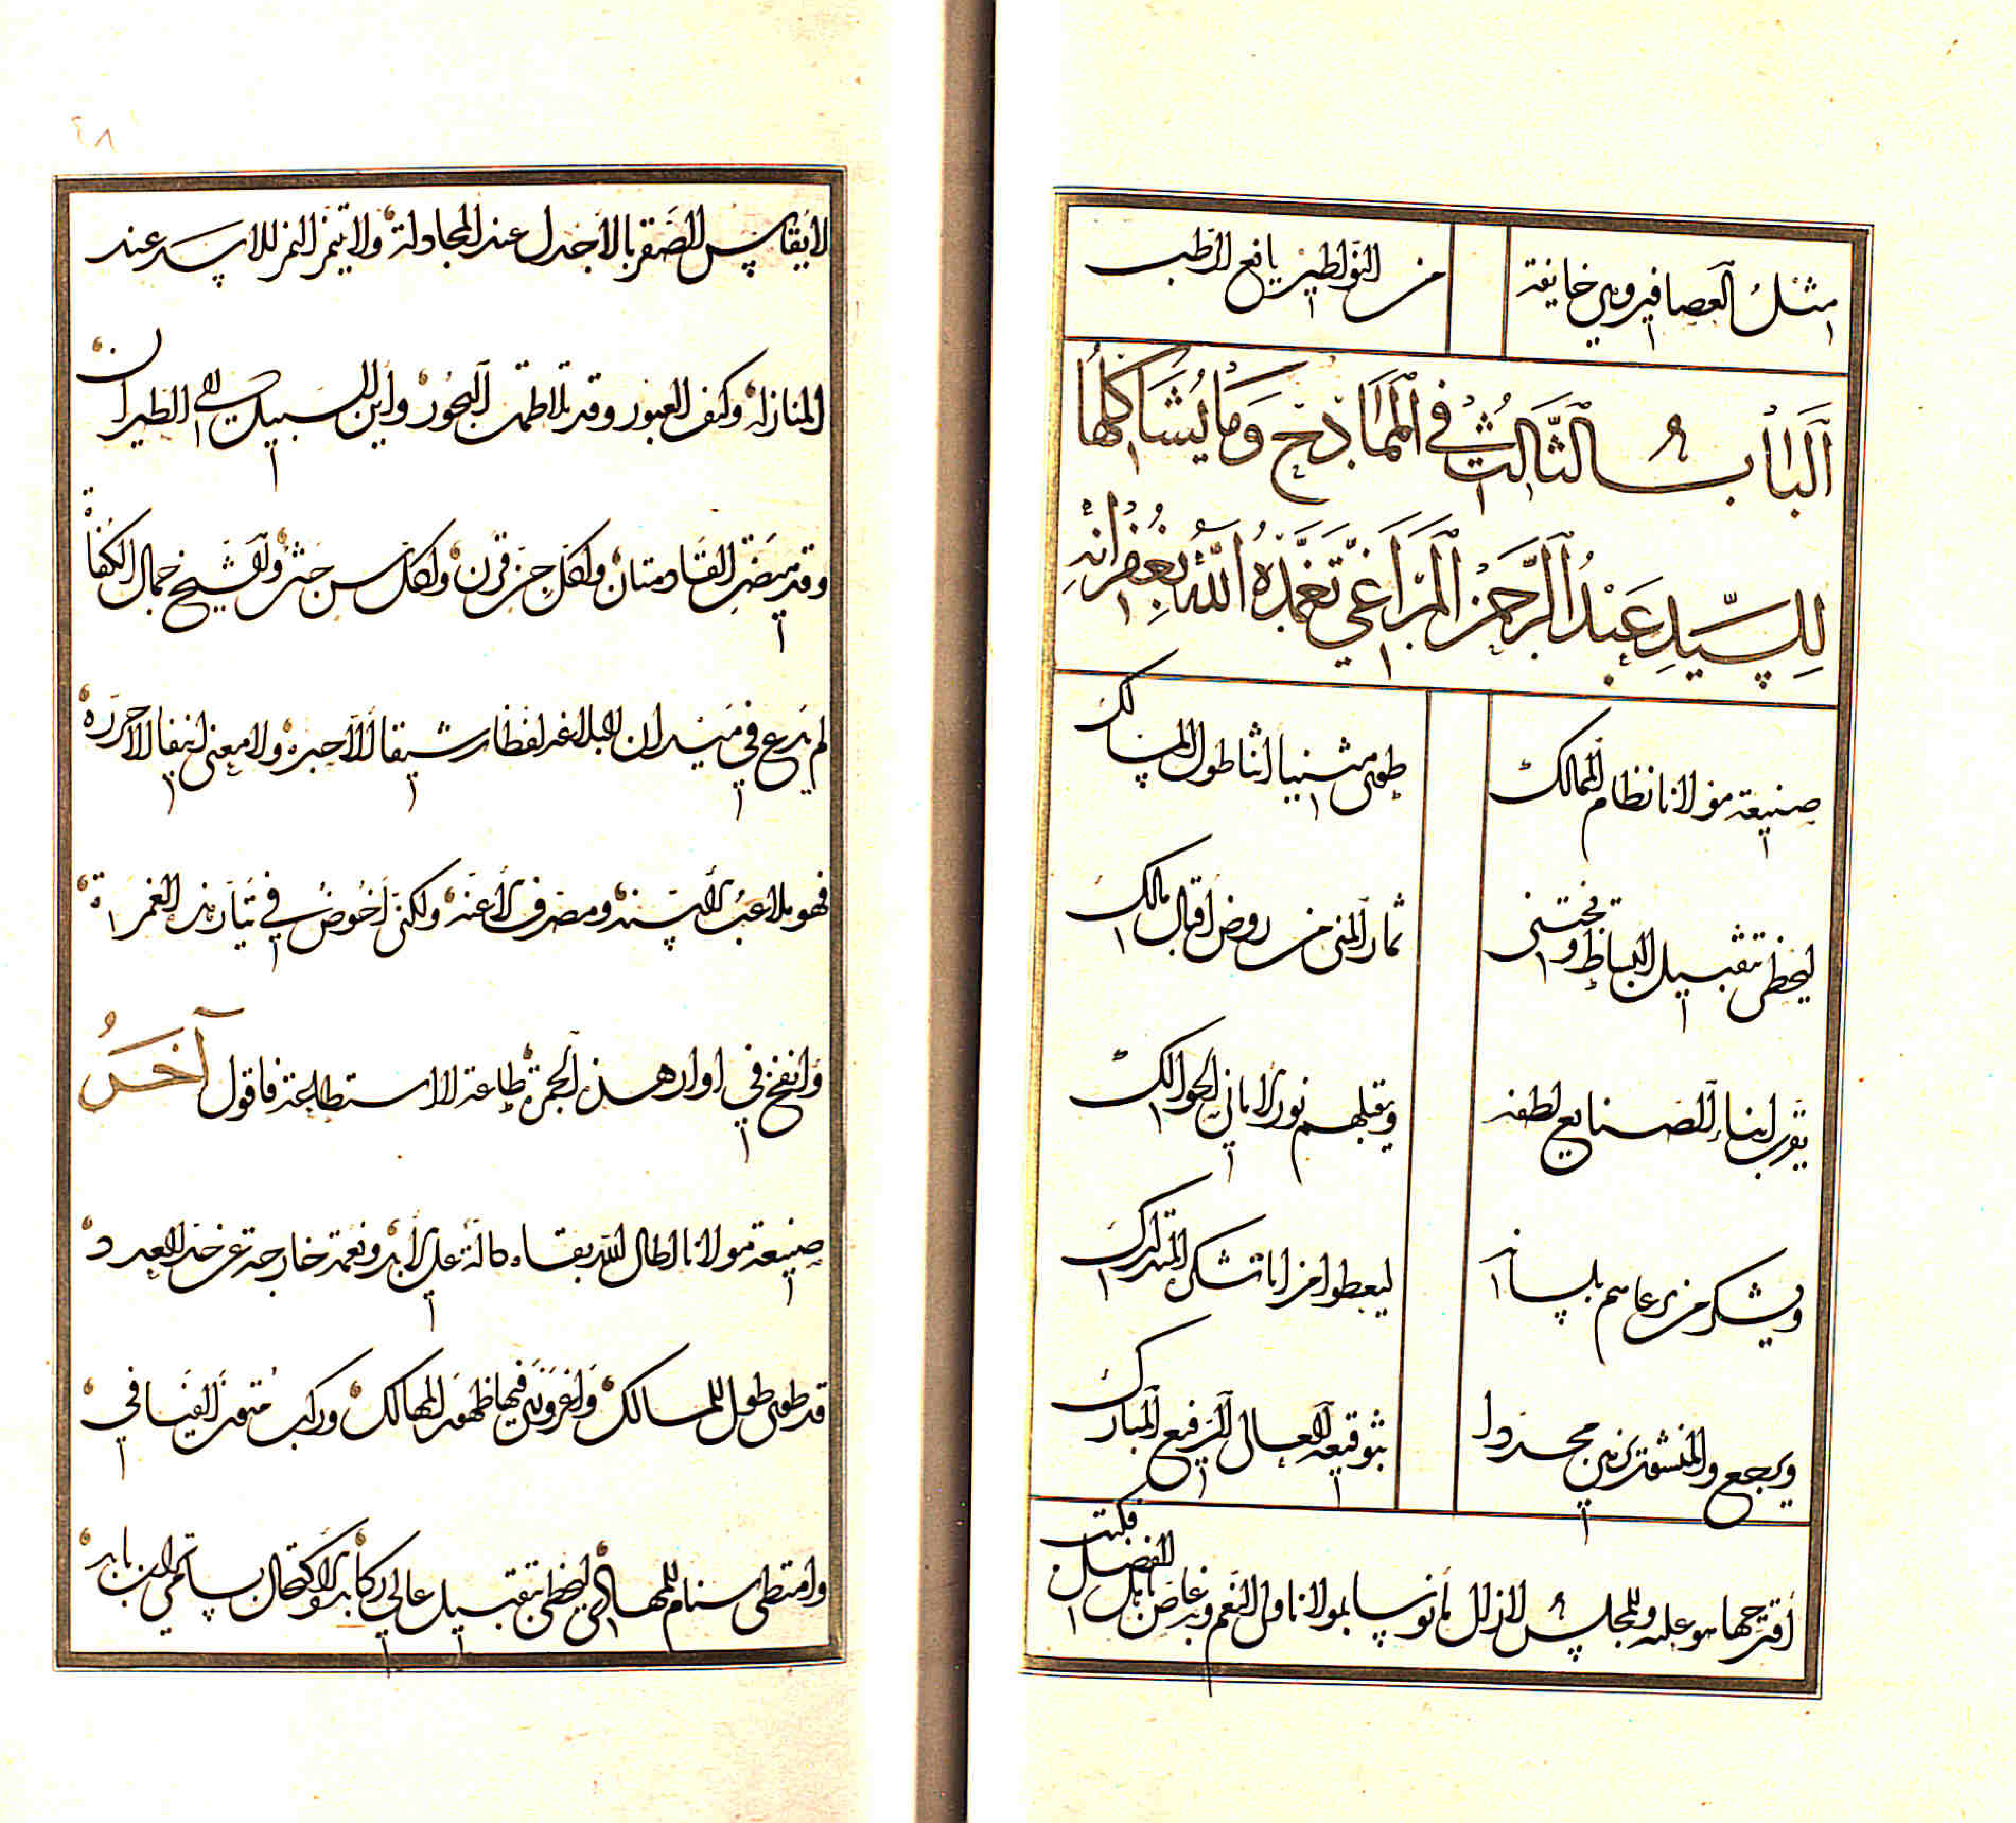 مثل العصافير وهي خايفة من النواطير يانع الرطب
الباب الثالث في الممادح وما يشاكلها
للسيد عبد الرحمن المراغي تغمده الله بغفرانه
صنيعة مولانا نظام الممالك طوى مثنيا اثنا طول المسالك
ليحظى بتقبيل البساط ويجتنى ثمار المنى من روض اقبال مالك
يقرب ابناء الصنايع لطفه ونورى الاماني الحوالك
ويشكر من يرعاهم بلسانه ليعطوا مزايا تشكى المتدارك
ويرجع والمنشور مجددا بتوقيعه العالى الرفيع المبارك
اقترحها هو عليه والمجلس لا زال مأنوسا بمولانا ولى النعم غاص الفضل فكتب
لا يقاس الصقر بالاجدل عند المجادلة ولا النمر للاسد عند
المنازله وكيف العبور وقد تلاطمت البحور وأين السبيل الى الطيران
وقد القادمتان ولكل قرن ولكل والشيخ جمال الكفاة
لم يدع في ميدان البلاغه لفظا رشيقا الا حبره ولا معنى انيقا الا حرره
فهو ملاعب الاسنه ومصرف الاعنه ولكنى أخوض في تيار هذه الغمرة
وانفخ في اوار هذه الجمرة طاعة لا استطاعة فاقول آخر
صنيعة مولانا اطال الله بقاءه على الابد ونعمة خارجة عن حد العدد
قد طوى طول المسالك فيها ظهر المهالك وركب متون الفيافي
وامتطى سنام المهاوى ليحظى بتقبيل عالي ركابه